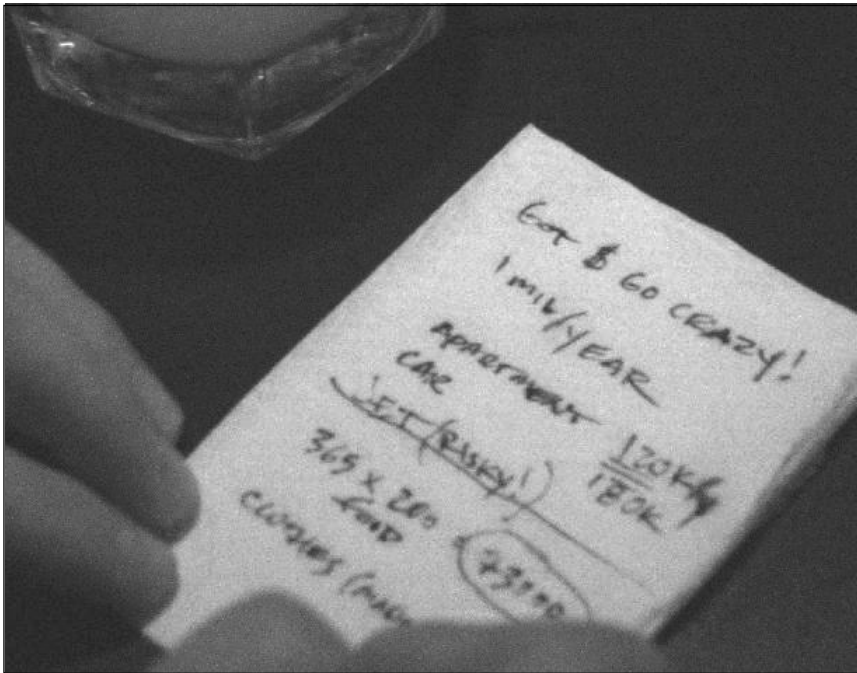 GOT $ GO CRAZY!
1 MIL/YEAR
APARTMENT 120K/y
CAR 180K
JET (RISKY!)
365 x 200 = 73000
FOOD
CLOTHES